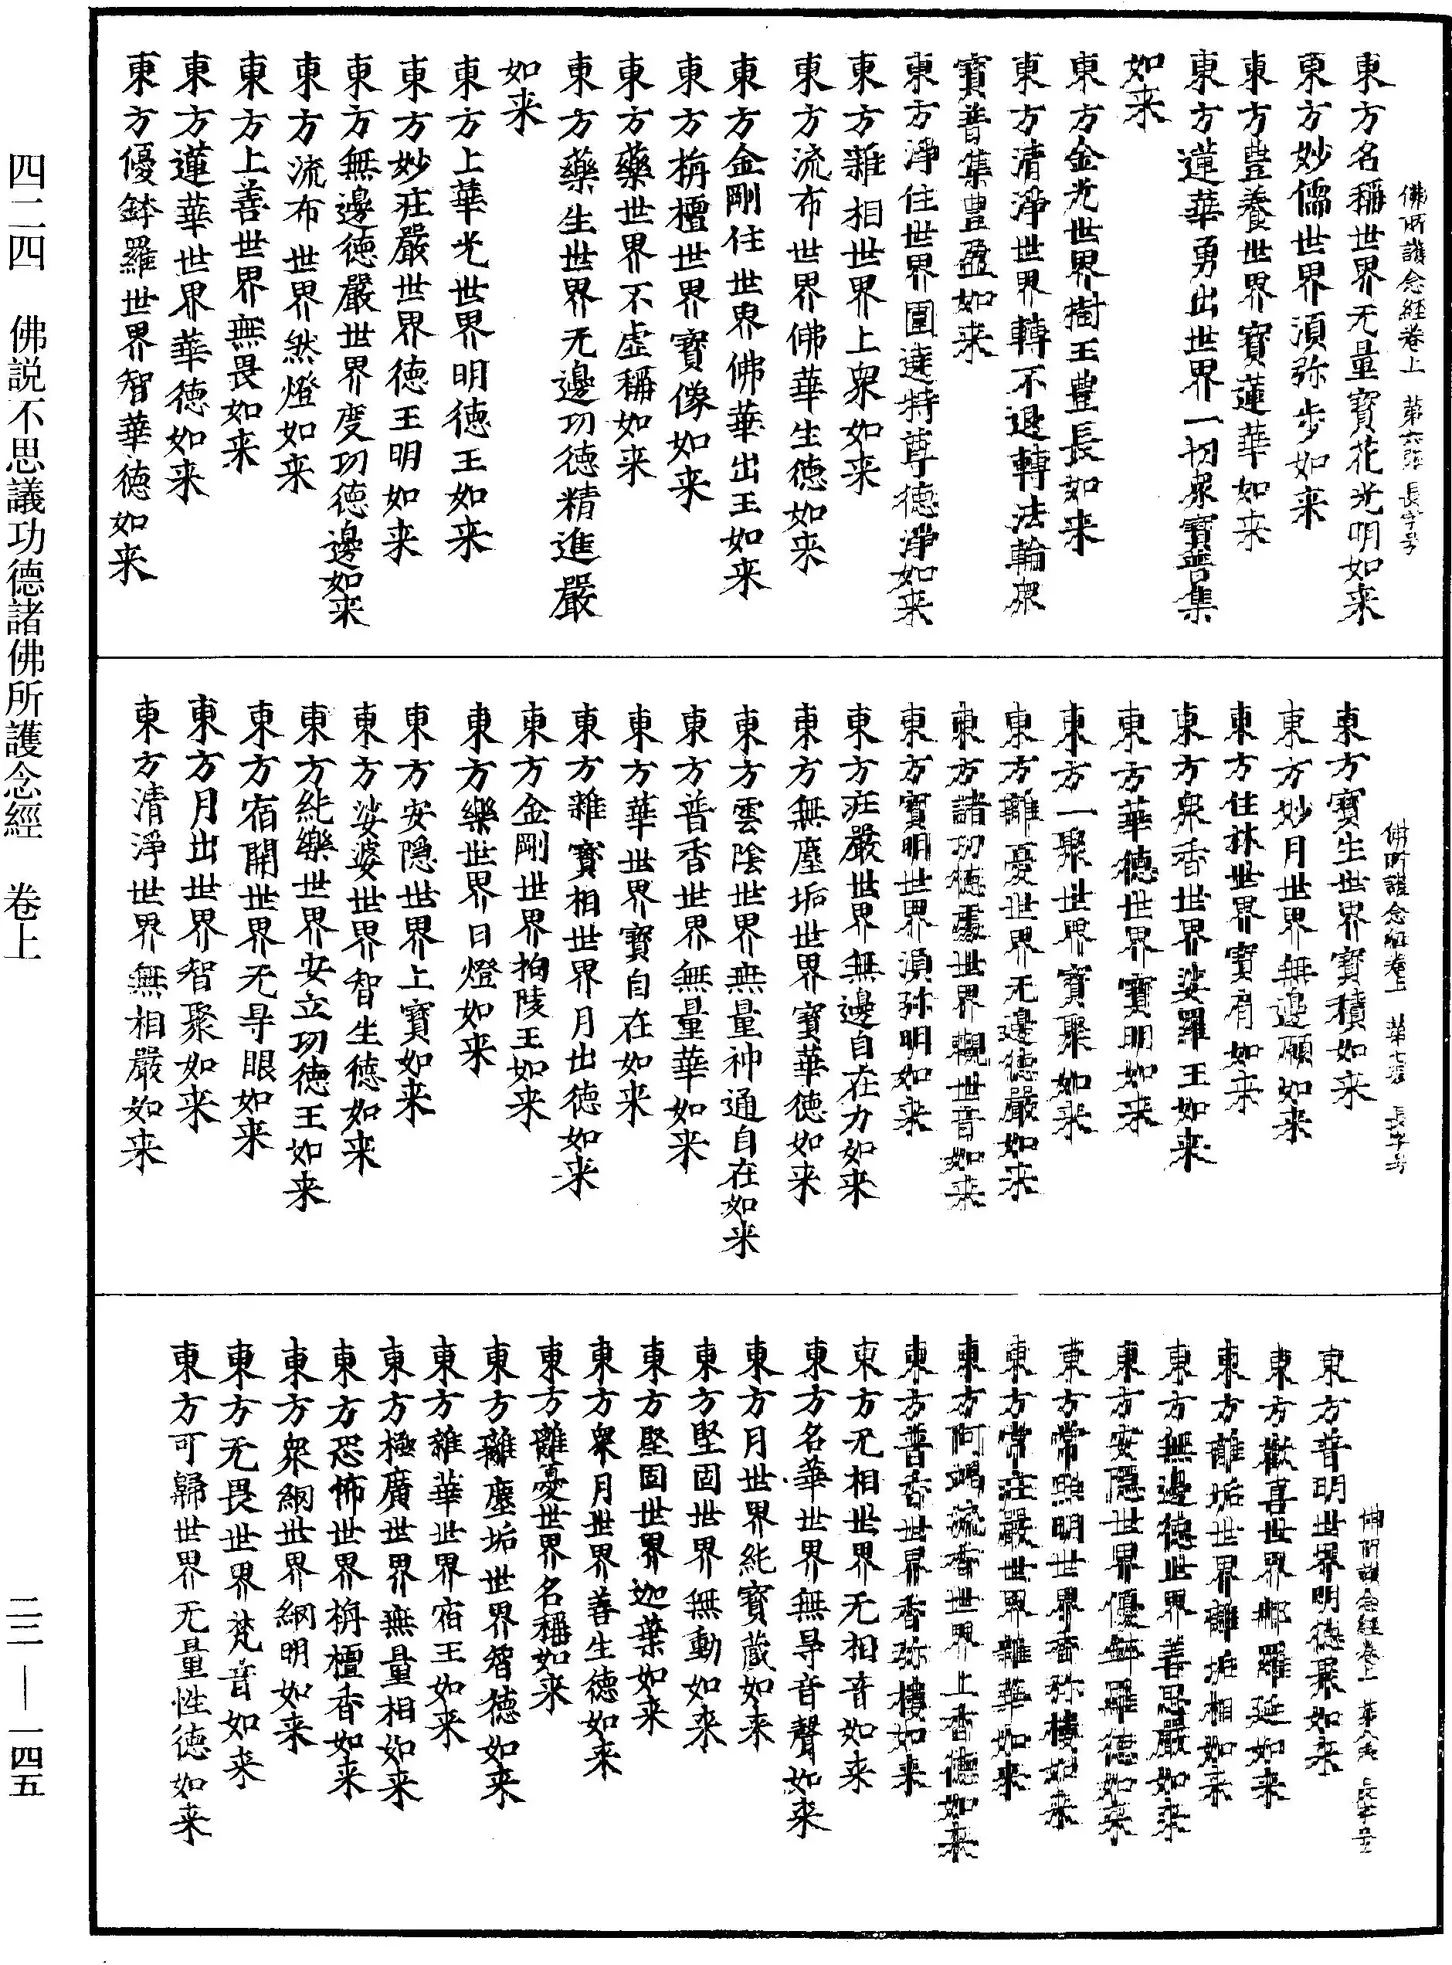 佛所護念經卷上 第六張 長字号
東方名稱世界无量寶花光明如来
東方妙儒世界湏弥步如来
東方豊養世界寶蓮華如来
東方蓮華勇出世界一切衆寶普集
如来
東方金光世界樹王豊長如来
東方清淨世界轉不退轉法輪衆
寶普集豊盈如来
東方淨住世界圍遶特尊德淨如来
東方雜相世界上衆如来
東方流布世界佛華生德如来
東方金剛住世界佛華出王如来
東方栴檀世界寶像如来
東方藥世界不虛稱如来
東方藥生世界无邊功德精進嚴
如来
東方上華光世界明德王如来
東方妙莊嚴世界德王明如来
東方無邊德嚴世界度功德邊如来
東方流布世界然燈如来
東方上善世界無畏如来
東方蓮華世界華德如来
東方優鉢羅世界智華德如来
佛所護念經卷上 第七張 長字号
東方寶生世界寶積如来
東方妙月世界無邊願如来
東方住林世界寶肩如来
東方衆香世界娑羅王如来
東方華德世界寶明如来
東方一聚世界寶聚如来
東方離憂世界无邊德嚴如来
東方諸功德處世界觀世音如来
東方寶明世界湏弥明如来
東方莊嚴世界無邊自在力如来
東方無塵垢世界寶華德如来
東方雲陰世界無量神通自在如来
東方普香世界無量華如来
東方華世界寶自在如来
東方雜寶相世界月出德如来
東方金剛世界拍陵王如来
東方樂世界日燈如来
東方安隱世界上寶如来
東方娑婆世界智生德如来
東方純樂世界安立功德王如来
東方宿開世界无㝵眼如来
東方月出世界智聚如来
東方清淨世界無相嚴如来
佛所護念經卷上 第八張 長字号
東方普明世界明德聚如来
東方歡喜世界那羅延如来
東方離垢世界離垢相如来
東方無邊德世界善思嚴如来
東方安隱世界優鉢羅德如来
東方常照明世界香弥樓如来
東方常莊嚴世界雜華如来
東方阿竭流香世界上香德如来
東方普香世界香弥樓如来
東方无相世界无相音如来
東方名華世界無㝵音聲如来
東方月世界純寶藏如来
東方堅固世界無動如来
東方堅固世界迦葉如来
東方衆月世界善生德如来
東方離憂世界名稱如来
東方離塵垢世界智德如来
東方雜華世界宿王如来
東方極廣世界無量相如来
東方恐怖世界栴檀香如来
東方衆網世界網明如来
東方无畏世界梵音如来
東方可歸世界无量性德如来
四二四 佛説不思議功德諸佛所護念經 卷上
二二——一四五